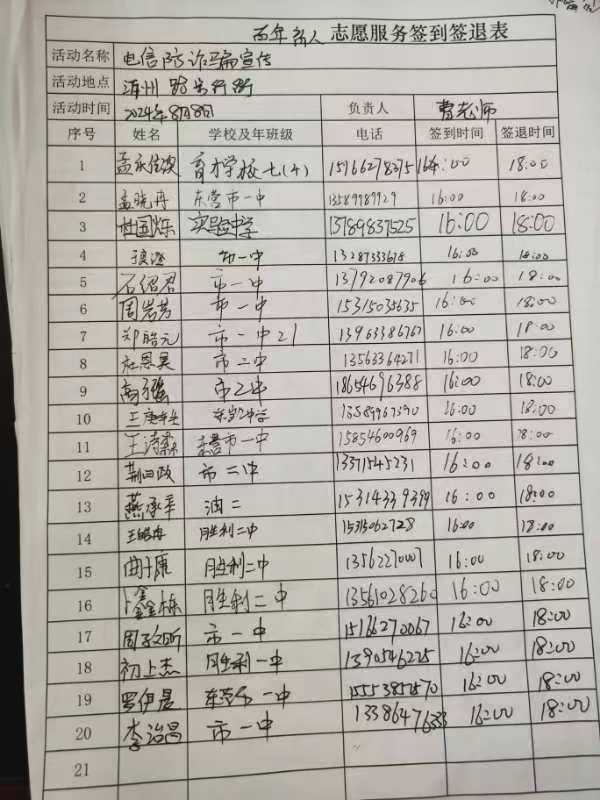 百年 人 志愿服务签到签退表
活动名称 电信防诈骗宣传
活动地点 州路步行街
活动时间 2024年8月8日 负责人 曹老师
序号 姓名 学校及年班级 电话 签到时间 签退时间
1 孟 育才学校七(4) 15166278375 16:00 18:00
2 孟晓冉 东营市一中 13589987929 16:00 18:00
3 杜国烁 实验中学 13789837525 16:00 18:00
4 市一中 13287333678 16:00 18:00
5 石绍君 市一中 13792087906 16:00 18:00
6 周岩芳 市一中 15315035635 16:00 18:00
7 郑皓元 市一中21 13963386767 16:00 18:00
8 杜恩昊 市二中 13563364271 16:00 18:00
9 市二中 18654696388 16:00 18:00
10 13589967390 16:00 18:00
11 东营市一中 15854600969 16:00 18:00
12 市二中 13371545231 16:00 18:00
13 燕承平 油二 15314339399 16:00 18:00
14 胜利二中 15315062728 16:00 18:00
15 曲子康 胜利二中 13562270007 16:00 18:00
16 卜鑫栋 胜利二中 13561028260 16:00 18:00
17 周子昕 市一中 15166270067 16:00 18:00
18 初上杰 胜利一中 1390546275 16:00 18:00
19 罗伊晨 东营市一中 15553857570 16:00 18:00
20 李治昌 市一中 13386476333 16:00 18:00
21